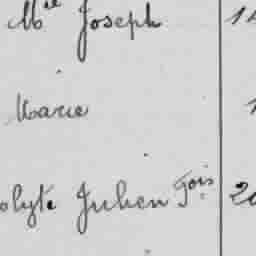 Mel Joseph 1
Marie 1
olyte Julien Fois 20